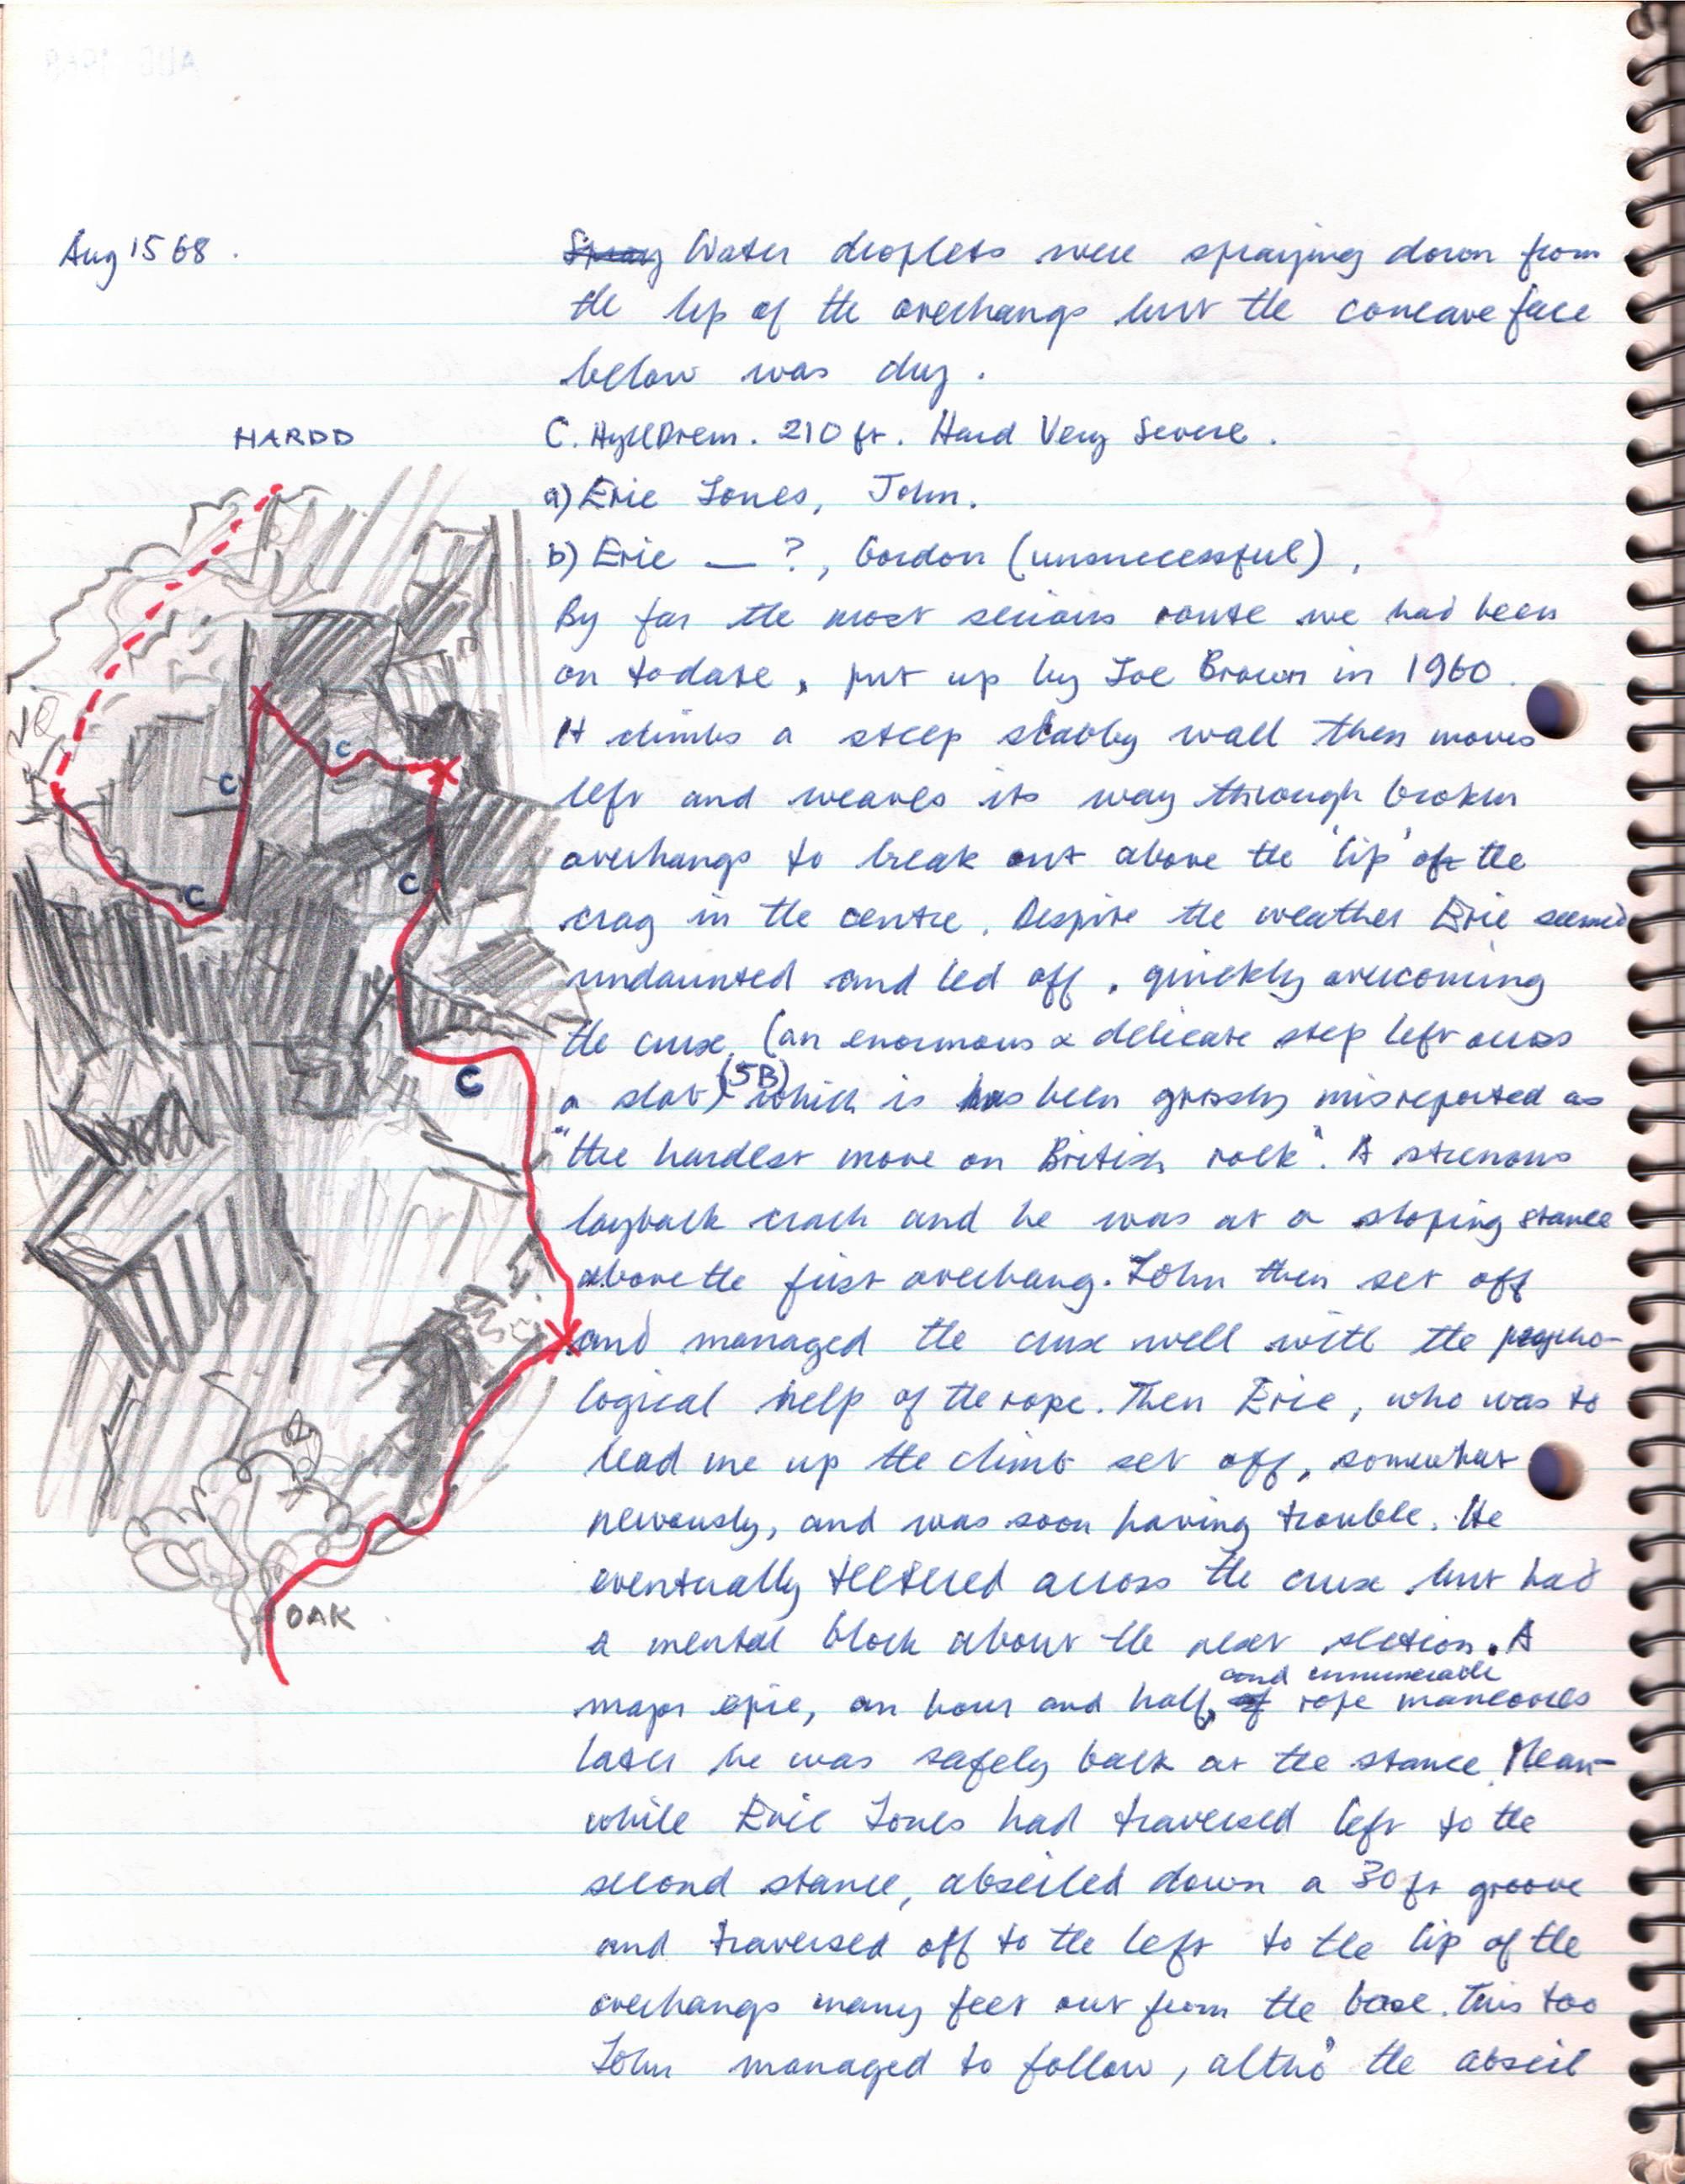 Aug 15 68.
Water droplets were spraying down from
the lip of the overhangs but the concave face
below was dry.
HARDD
C. Hyll Drem. 210 ft. Hard Very Severe.
a) Eric Jones, John.
b) Eric — ?, Gordon (unsuccessful),
By far the most serious route we had been
on to date, put up by Joe Brown in 1960.
It climbs a steep slabby wall then moves
left and weaves its way through broken
overhangs to break out above the 'lip' of the
crag in the centre. Despite the weather Eric seemed
undaunted and led off, quickly overcoming
the crux, (an enormous & delicate step left across
a slab) (5B) which is has been grossly misreported as
"the hardest move on British rock". A strenuous
layback crack and he was at a sloping stance
above the first overhang. John then set off
and managed the crux well with the psycho-
logical help of the rope. Then Eric, who was to
lead me up the climb set off, somewhat
nervously, and was soon having trouble. He
eventually teetered across the crux but had
a mental block about the next section. A
major epic, an hour and half, and innumerable rope maneovres
later he was safely back at the stance. Mean-
while Eric Jones had traversed left to the
second stance, abseiled down a 30 ft groove
and traversed off to the left to the lip of the
overhangs many feet out from the base. This too
John managed to follow, altho' the abseil
C
C
C
C
C
OAK